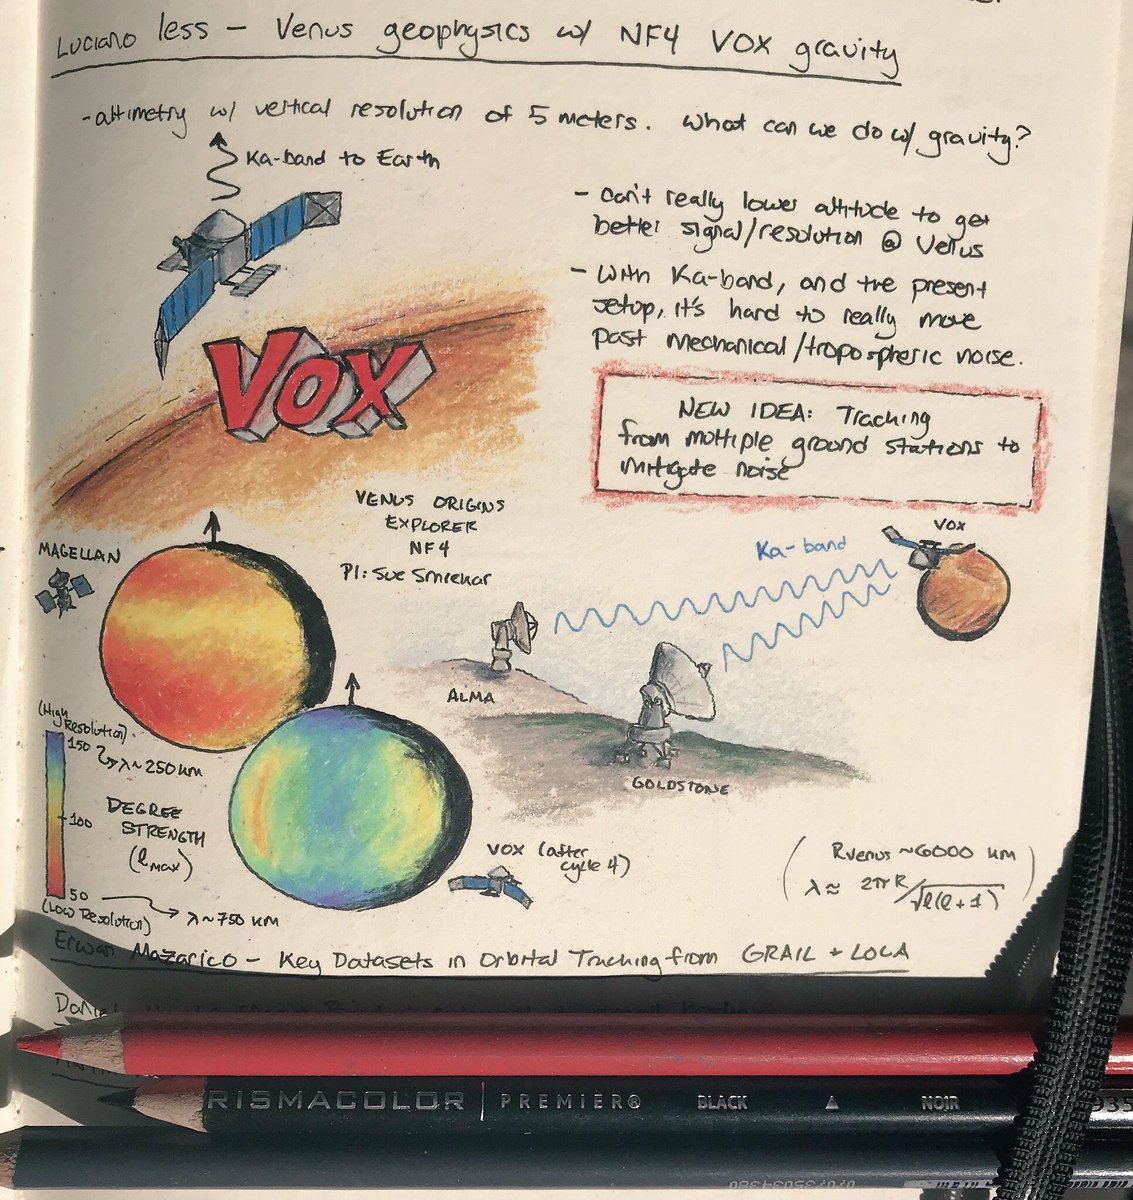 Luciano Iess – Venus geophysics w/ NF4 VOX gravity
- altimetry w/ vertical resolution of 5 meters. What can we do w/ gravity?
Ka-band to Earth
- Can't really lower altitude to get
better signal/resolution @ Venus
- With Ka-band, and the present
setup, it's hard to really move
past mechanical/tropospheric noise.
VOX
NEW IDEA: Tracking
from multiple ground stations to
mitigate noise
VENUS ORIGINS
EXPLORER
NF4
PI: Sue Smrekar
MAGELLAN
VOX
Ka-band
ALMA
GOLDSTONE
(High
Resolution)
150
λ~250 km
DEGREE
STRENGTH
(lmax)
100
50
(LOW Resolution)
λ~750 km
VOX (after
cycle 4)
(Rvenus ~6000 km
λ ≈ 2πR/√l(l+1))
Erwan Mazarico – Key Datasets in Orbital Tracking from GRAIL + LOLA
RISMACOLOR | PREMIER® BLACK ▲ NOIR 935